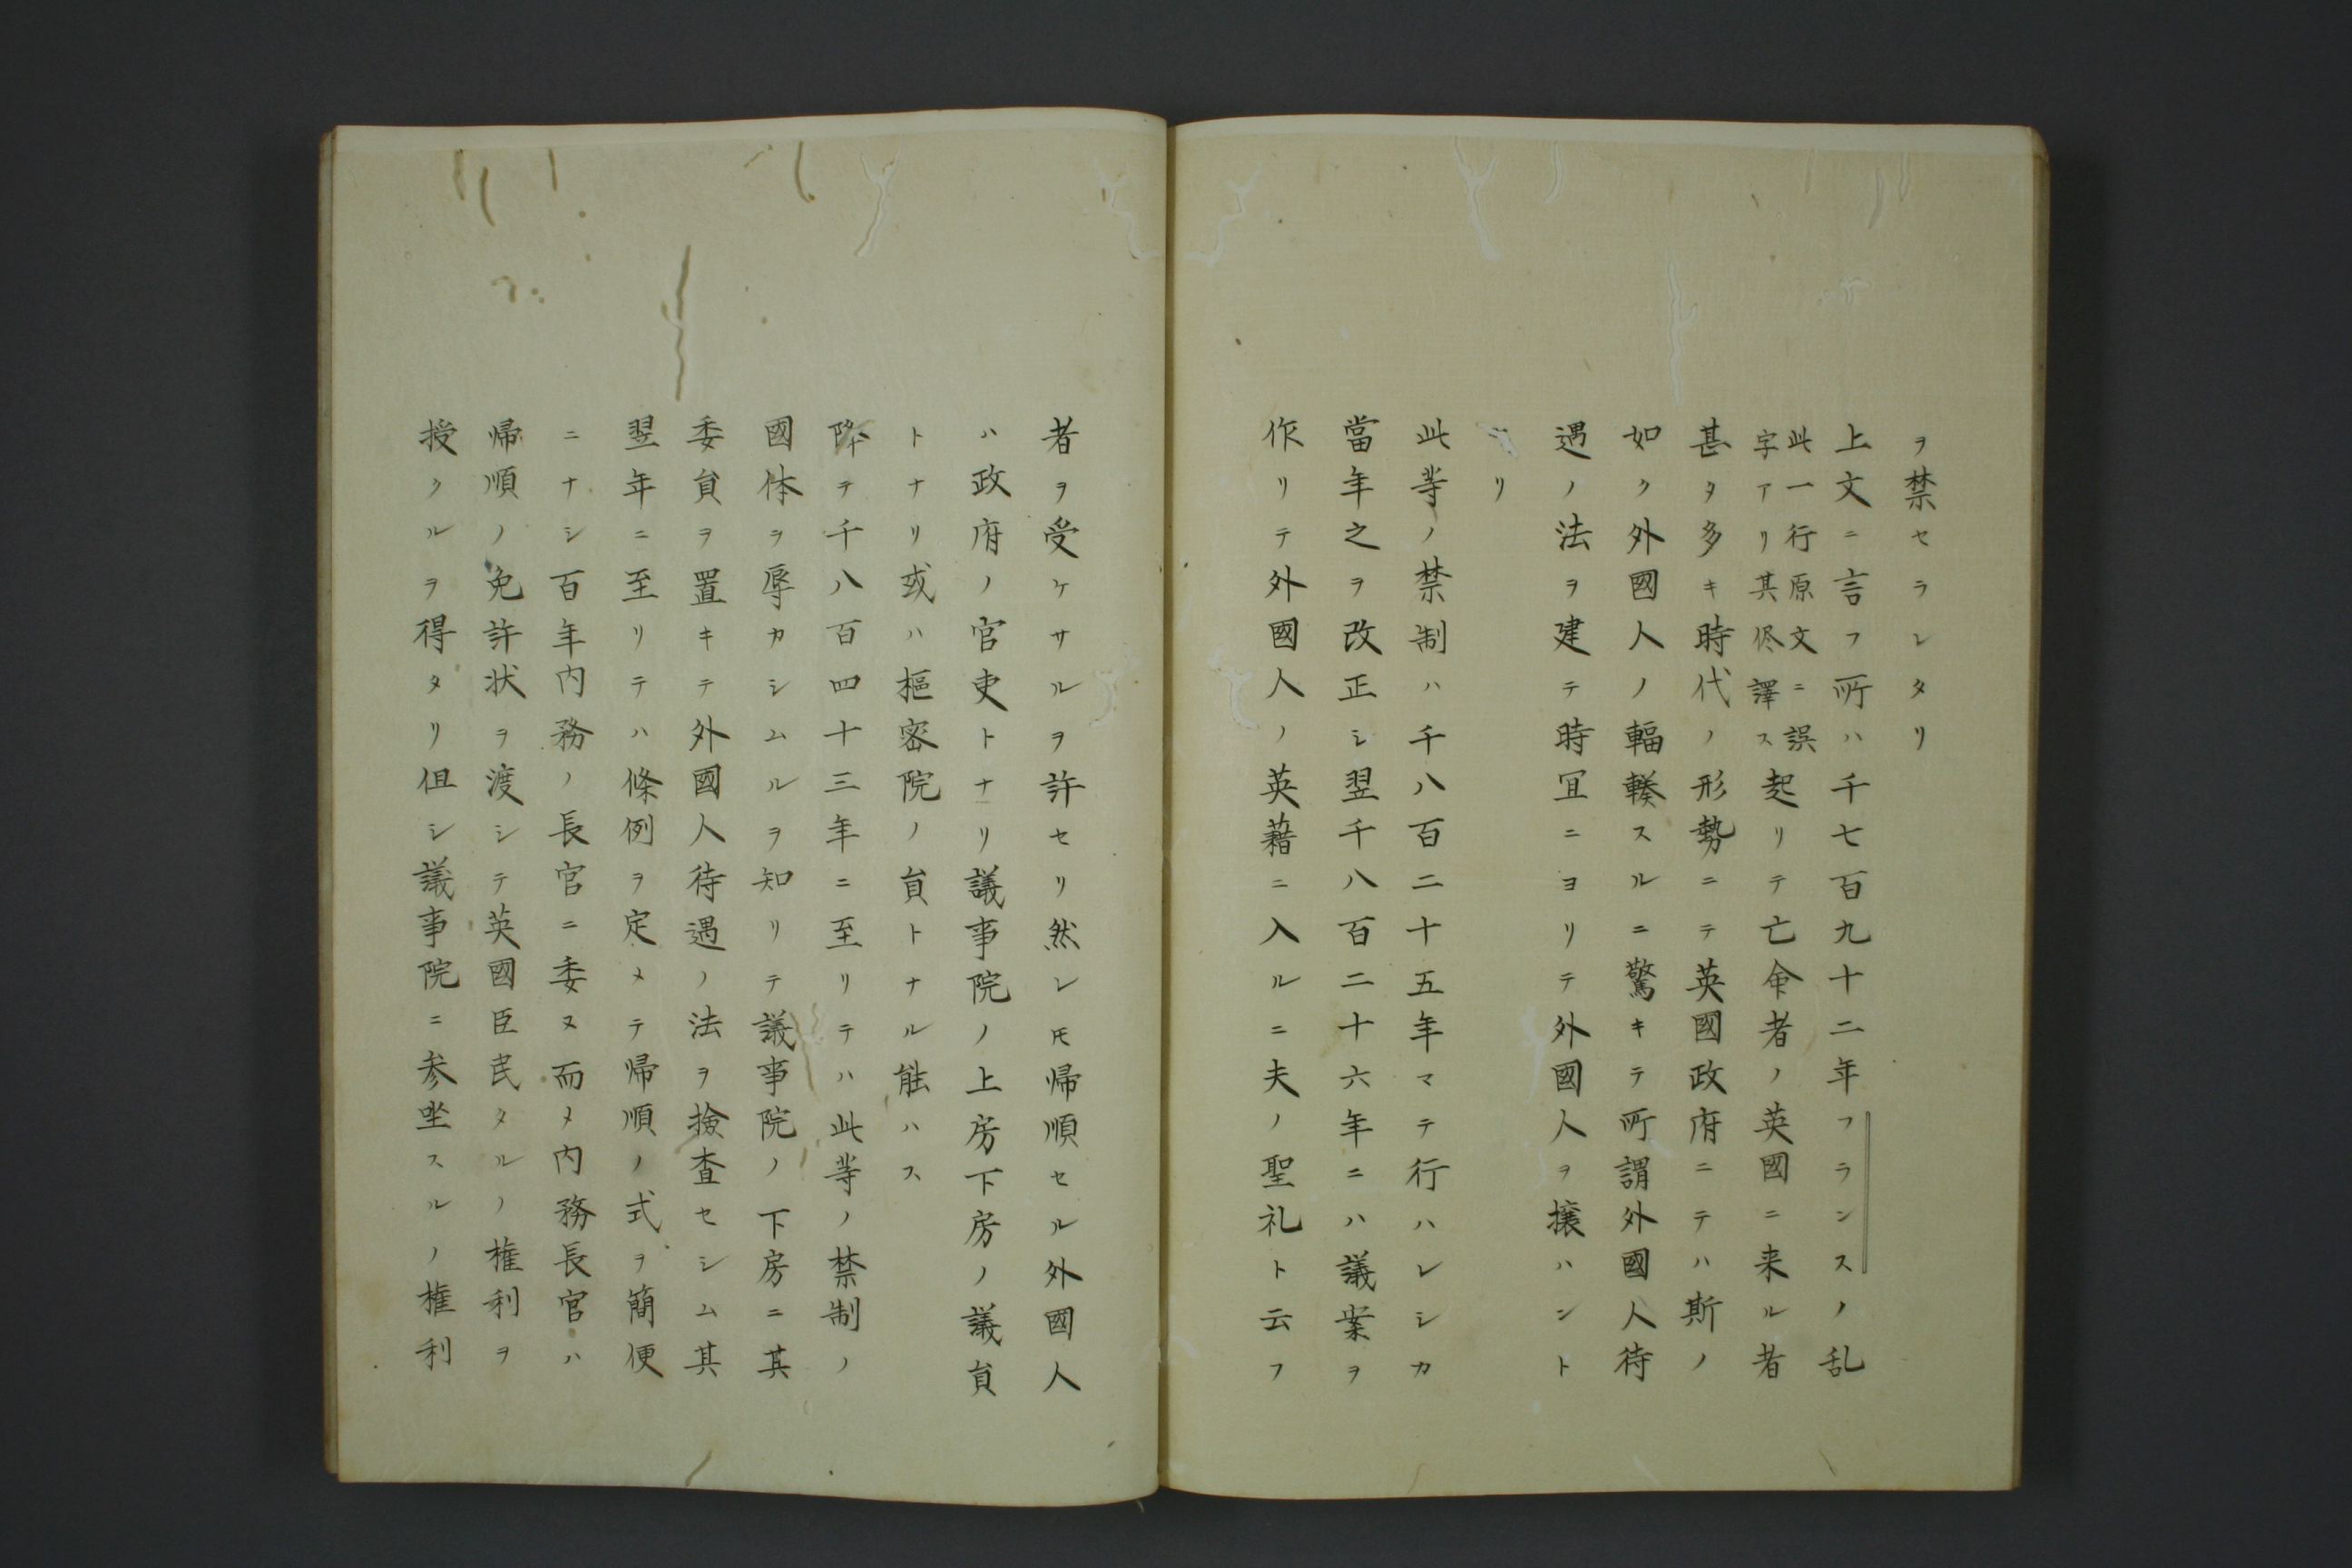 ヲ禁セラレタリ
上文ニ言フ所ハ千七百九十二年フランスノ乱
此一行原文ニ誤
字アリ其侭譯ス
起リテ亡命者ノ英國ニ来ル者
甚タ多キ時代ノ形勢ニテ英國政府ニテハ斯ノ
如ク外國人ノ輻輳スルニ驚キテ所謂外國人待
遇ノ法ヲ建テ時冝ニヨリテ外國人ヲ攘ハント
リ
此等ノ禁制ハ千八百二十五年マテ行ハレシカ
當年之ヲ改正シ翌千八百二十六年ニハ議案ヲ
作リテ外國人ノ英藉ニ入ルニ夫ノ聖礼ト云フ
者ヲ受ケサルヲ許セリ然レ𪜈帰順セル外國人
ハ政府ノ官吏トナリ議事院ノ上房下房ノ議貟
トナリ或ハ樞密院ノ貟トナル能ハス
降テ千八百四十三年ニ至リテハ此等ノ禁制ノ
國体ヲ辱カシムルヲ知リテ議事院ノ下房ニ其
委貟ヲ置キテ外國人待遇ノ法ヲ撿査セシム其
翌年ニ至リテハ條例ヲ定メテ帰順ノ式ヲ簡便
ニナシ百年内務ノ長官ニ委ヌ而メ内務長官ハ
帰順ノ免許状ヲ渡シテ英國臣民タルノ権利ヲ
授クルヲ得タリ但シ議事院ニ参坐スルノ権利